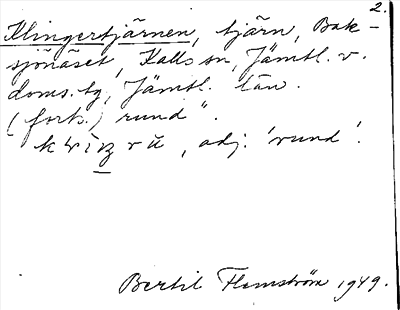 2.
Klingertjärnen, tjärn, Bak-
sjönäset, Kalls sn, Jämtl. v.
doms.tg, Jämtl. län.
(forts.) rund".
adj. 'rund'.
Bertil Flemström 1949.